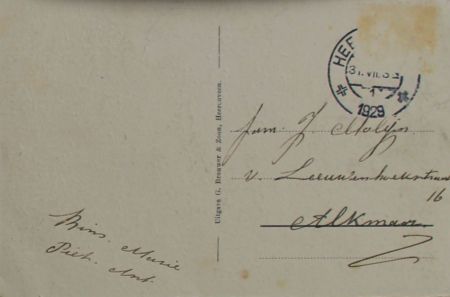 HEE
31.VII.33
1
1929
Uitgave G. Brouwer & Zoon, Heerenveen.
Fam. J. Molijn
v. Leeuwenhoekstraat
16
Alkmaar.
Rins. Marie
Piet. Ant.